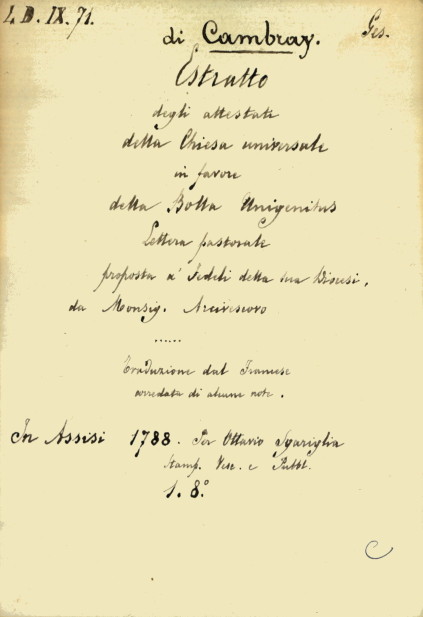 4 D. IX. 71.
di Cambray.
Ges.
Estratto
degli attestati
della Chiesa universale
in favore
della Bolla Unigenitus
Lettera pastorale
proposta a' Fedeli della sua Diocesi,
da Monsig. Arcivescovo
......
Traduzione dal Francese
corredata di alcune note.
In Assisi 1788. Per Ottavio Sgariglia
Stamp. Vesc. e Pubbl.
1. 8.º